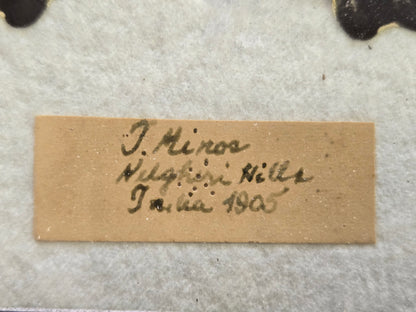 T. Minos
Nilgheri Hills
India 1905